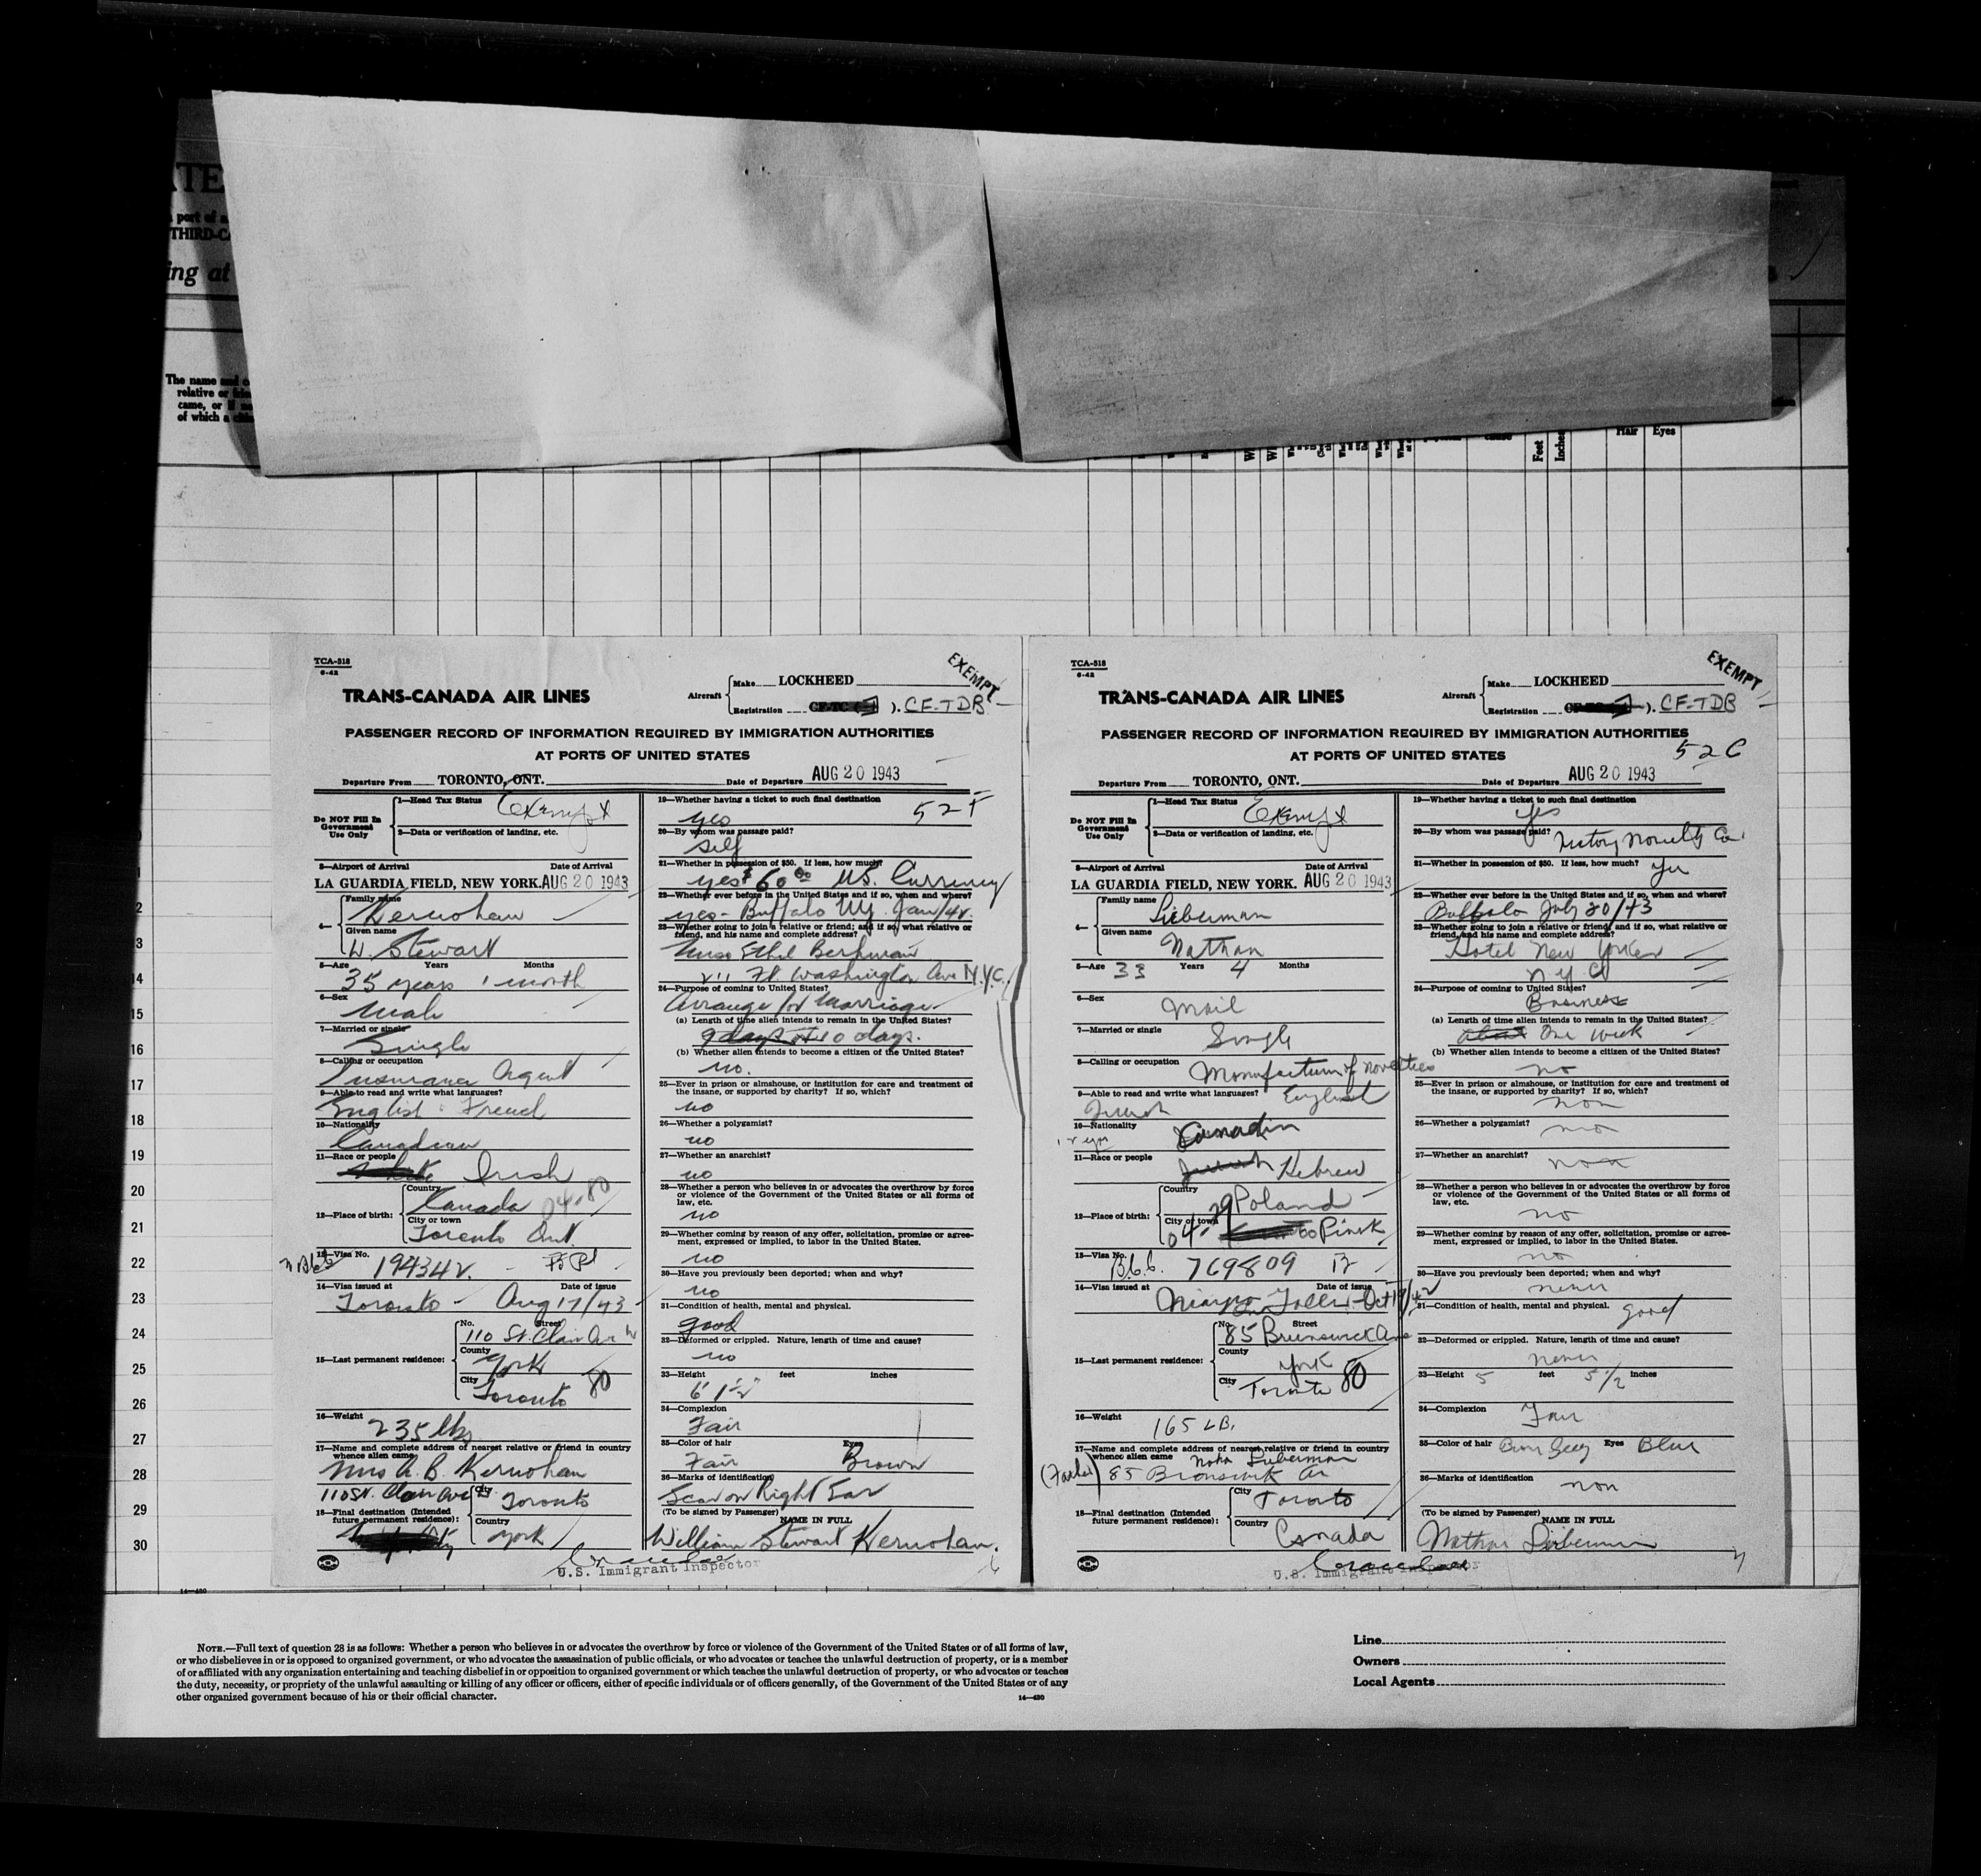 ATE
port of a
THIRD-C
ing at
The name and c
relative or frie
came, or if no
of which a citi
Feet
Inches
Hair
Eyes
TCA-518
6-42
TRANS-CANADA AIR LINES
Aircraft
Make LOCKHEED
Registration ). CF-TDB
EXEMPT
PASSENGER RECORD OF INFORMATION REQUIRED BY IMMIGRATION AUTHORITIES
AT PORTS OF UNITED STATES
Departure From TORONTO, ONT. Date of Departure AUG 20 1943
Do NOT Fill In
Government
Use Only
1—Head Tax Status Exempt
2—Data or verification of landing, etc.
3—Airport of Arrival Date of Arrival
LA GUARDIA FIELD, NEW YORK. AUG 20 1943
4—
Family name
Kernohan
Given name
W. Stewart
5—Age Years Months
35 years 1 month
6—Sex
Male
7—Married or single
Single
8—Calling or occupation
Insurance Agent
9—Able to read and write what languages?
English French
10—Nationality
Canadian
11—Race or people
Irish
12—Place of birth:
Country
Canada
City or town
Toronto Ont.
13—Visa No.
194342.
14—Visa issued at Date of issue
Toronto - Aug 17/43
15—Last permanent residence:
No. Street
110 St. Clair Ave W
County
York
City
Toronto 80
16—Weight
235 lbs
17—Name and complete address of nearest relative or friend in country
whence alien came
Mrs A. B. Kernohan
110 St. Clair Ave W
City
Toronto
18—Final destination (Intended
future permanent residence):
Country
York
19—Whether having a ticket to such final destination
yes
52 F
20—By whom was passage paid?
Self
21—Whether in possession of $50. If less, how much?
yes $60 00 U.S. Currency
22—Whether ever before in the United States and if so, when and where?
yes - Buffalo NY. Jan/42.
23—Whether going to join a relative or friend; and if so, what relative or
friend, and his name and complete address?
Miss Ethel Berkman
211 Ft Washington Ave N.Y.C.
24—Purpose of coming to United States?
Arrange for Marriage
(a) Length of time alien intends to remain in the United States?
10 days.
(b) Whether alien intends to become a citizen of the United States?
no.
25—Ever in prison or almshouse, or institution for care and treatment of
the insane, or supported by charity? If so, which?
no
26—Whether a polygamist?
no
27—Whether an anarchist?
no
28—Whether a person who believes in or advocates the overthrow by force
or violence of the Government of the United States or all forms of
law, etc.
no
29—Whether coming by reason of any offer, solicitation, promise or agree-
ment, expressed or implied, to labor in the United States.
no
30—Have you previously been deported; when and why?
no
31—Condition of health, mental and physical.
good
32—Deformed or crippled. Nature, length of time and cause?
no
33—Height feet inches
6' 1½"
34—Complexion
Fair
35—Color of hair Eyes
Fair Brown
36—Marks of identification
Scar on Right Ear
(To be signed by Passenger) NAME IN FULL
William Stewart Kernohan.
U.S. Immigrant Inspector
TCA-518
6-42
TRANS-CANADA AIR LINES
Aircraft
Make LOCKHEED
Registration ). CF-TDB
EXEMPT
PASSENGER RECORD OF INFORMATION REQUIRED BY IMMIGRATION AUTHORITIES
AT PORTS OF UNITED STATES
52 C
Departure From TORONTO, ONT. Date of Departure AUG 20 1943
Do NOT Fill In
Government
Use Only
1—Head Tax Status Exempt
2—Data or verification of landing, etc.
3—Airport of Arrival Date of Arrival
LA GUARDIA FIELD, NEW YORK. AUG 20 1943
4—
Family name
Lieberman
Given name
Nathan
5—Age 33 Years 4 Months
6—Sex
Mail
7—Married or single
Single
8—Calling or occupation
Manufacturer of novelties
9—Able to read and write what languages? English
Jewish
10—Nationality
Canadin
11—Race or people
Hebrew
12—Place of birth:
Country
Poland
City or town
Pinsk
13—Visa No.
B.C.C. 769809
14—Visa issued at Date of issue
Niagra Falls - Oct 17/42
15—Last permanent residence:
No. Street
85 Brunswick Ave
County
York
City
Toronto 80
16—Weight
165 LB.
17—Name and complete address of nearest relative or friend in country
whence alien came Lieberman
(Father) 85 Bronswick Av
City
Toronto
18—Final destination (Intended
future permanent residence):
Country
Canada
19—Whether having a ticket to such final destination
yes
20—By whom was passage paid?
Victory Novelty Co.
21—Whether in possession of $50. If less, how much?
Yes
22—Whether ever before in the United States and if so, when and where?
Buffalo July 20/43
23—Whether going to join a relative or friend; and if so, what relative or
friend, and his name and complete address?
Hotel New Yorker
N Y C
24—Purpose of coming to United States?
Business
(a) Length of time alien intends to remain in the United States?
about One week
(b) Whether alien intends to become a citizen of the United States?
no
25—Ever in prison or almshouse, or institution for care and treatment of
the insane, or supported by charity? If so, which?
non
26—Whether a polygamist?
no
27—Whether an anarchist?
non
28—Whether a person who believes in or advocates the overthrow by force
or violence of the Government of the United States or all forms of
law, etc.
no
29—Whether coming by reason of any offer, solicitation, promise or agree-
ment, expressed or implied, to labor in the United States.
no
30—Have you previously been deported; when and why?
never
31—Condition of health, mental and physical. good
32—Deformed or crippled. Nature, length of time and cause?
never
33—Height 5 feet 5 1/2 inches
34—Complexion
Fair
35—Color of hair Eyes Blue
36—Marks of identification
non
(To be signed by Passenger) NAME IN FULL
Nathan Lieberman
U.S. Immigrant Inspector
2
3
14
15
16
17
18
19
20
21
22
23
24
25
26
27
28
29
30
14—430
NOTE.—Full text of question 28 is as follows: Whether a person who believes in or advocates the overthrow by force or violence of the Government of the United States or of all forms of law,
or who disbelieves in or is opposed to organized government, or who advocates the assassination of public officials, or who advocates or teaches the unlawful destruction of property, or is a member
of or affiliated with any organization entertaining and teaching disbelief in or opposition to organized government or which teaches the unlawful destruction of property, or who advocates or teaches
the duty, necessity, or propriety of the unlawful assaulting or killing of any officer or officers, either of specific individuals or of officers generally, of the Government of the United States or of any
other organized government because of his or their official character.
14—430
Line
Owners
Local Agents